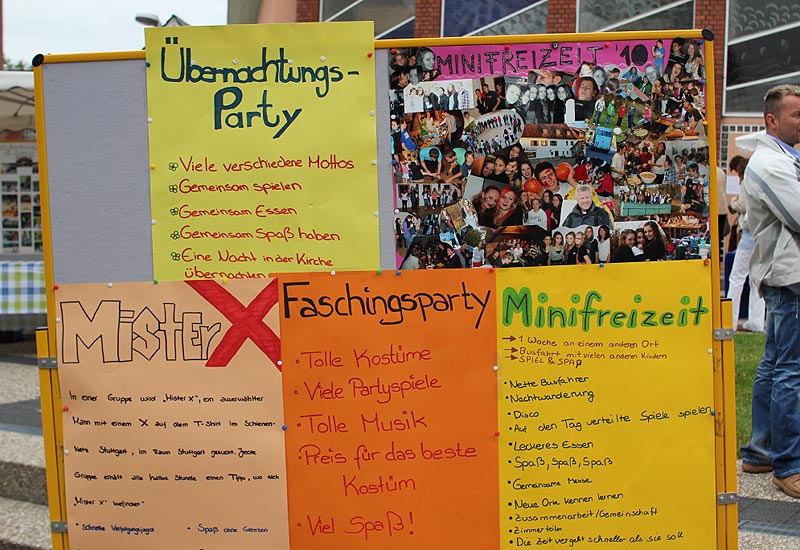 Übernachtungs-
Party
Viele verschiedene Mottos
Gemeinsam spielen
Gemeinsam Essen
Gemeinsam Spaß haben
Eine Nacht in der Kirche
übernachten
MINIFREIZEIT '10
Mister X
In einer Gruppe wird „Mister X", ein auserwählter
Mann mit einem X auf dem T-Shirt im Schienen-
Netz Stuttgart, im Raum Stuttgart gesucht. Jede
Gruppe erhält alle halbe Stunde einen Tipp, wo sich
„Mister X" befindet
• Schnelle Verfolgungsjagd
• Spaß ohne Grenzen
Faschingsparty
• Tolle Kostüme
• Viele Partyspiele
• Tolle Musik
• Preis für das beste
Kostüm
• Viel Spaß!
Minifreizeit
→ 1 Woche an einem anderen Ort
→ Busfahrt mit vielen anderen Kindern
→ SPIEL & SPAß
• Nette Busfahrer
• Nachtwanderung
• Disco
• Auf den Tag verteilte Spiele spielen
• Leckeres Essen
• Spaß, Spaß, Spaß
• Gemeinsame Messe
• Neue Orte kennen lernen
• Zusammenarbeit/Gemeinschaft
• Zimmerteilen
• Die Zeit vergeht schneller als sie soll